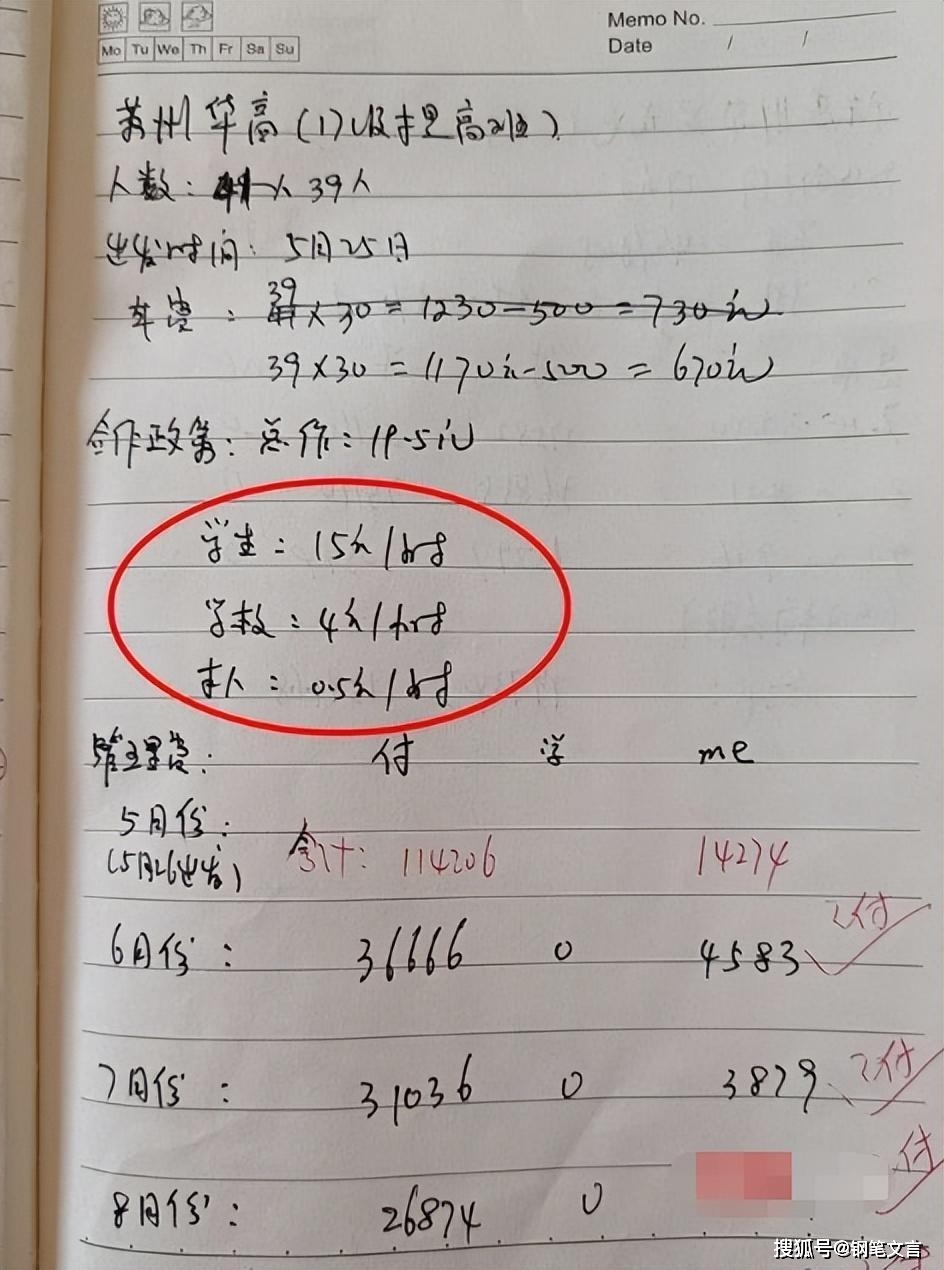 Memo No.
Mo Tu We Th Fr Sa Su
Date / /
苏州华高(17级护理高班)
人数: 41人 39人
出发时间: 5月25日
39
车费: 41×30=1230-500=730元
39×30=1170元-500=670元
合作政策: 总价: 19.5元
学生: 15元/小时
学校: 4元/小时
本人: 0.5元/小时
管理费: 付 学 me
5月份:
(5月26出发) 合计: 114206 14274
6月份: 36666 0 4583 已付
7月份: 31036 0 3879 已付
8月份: 26874 0 付
搜狐号@钢笔文言